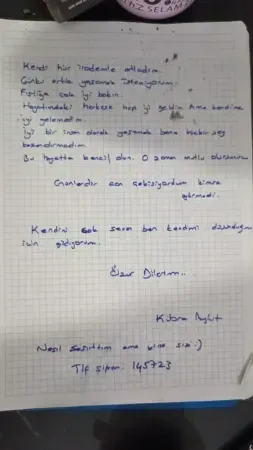 HZ SELAM
Kendi hür irademle atladım.
Çünkü artık yaşamak istemiyorum.
Fıstığa çok iyi bakın.
Hayatımdaki herkese hep iyi geldim Ama kendime
iyi gelemedim.
iyi bir insan olarak yaşamak bana hiçbir şey
kazandırmadı.
Bu hayatta bencil olun. O zaman mutlu olursunuz
Günlerdir can çekişiyordum kimse
görmedi.
Kendini çok seven ben kendimi düşündüğüm
için gidiyorum.
Özür Dilerim..
Kübra Aykut
Nasıl şaşırttım ama yine sizi :)
Tlf şifrem. 145723